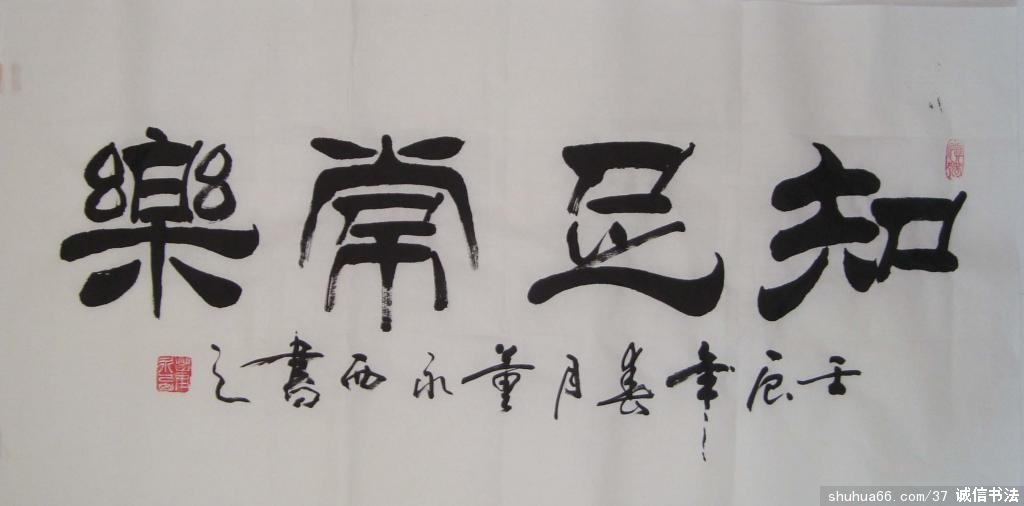 知足常樂
壬辰年春月董永西書之
shuhua66.com/37 诚信书法